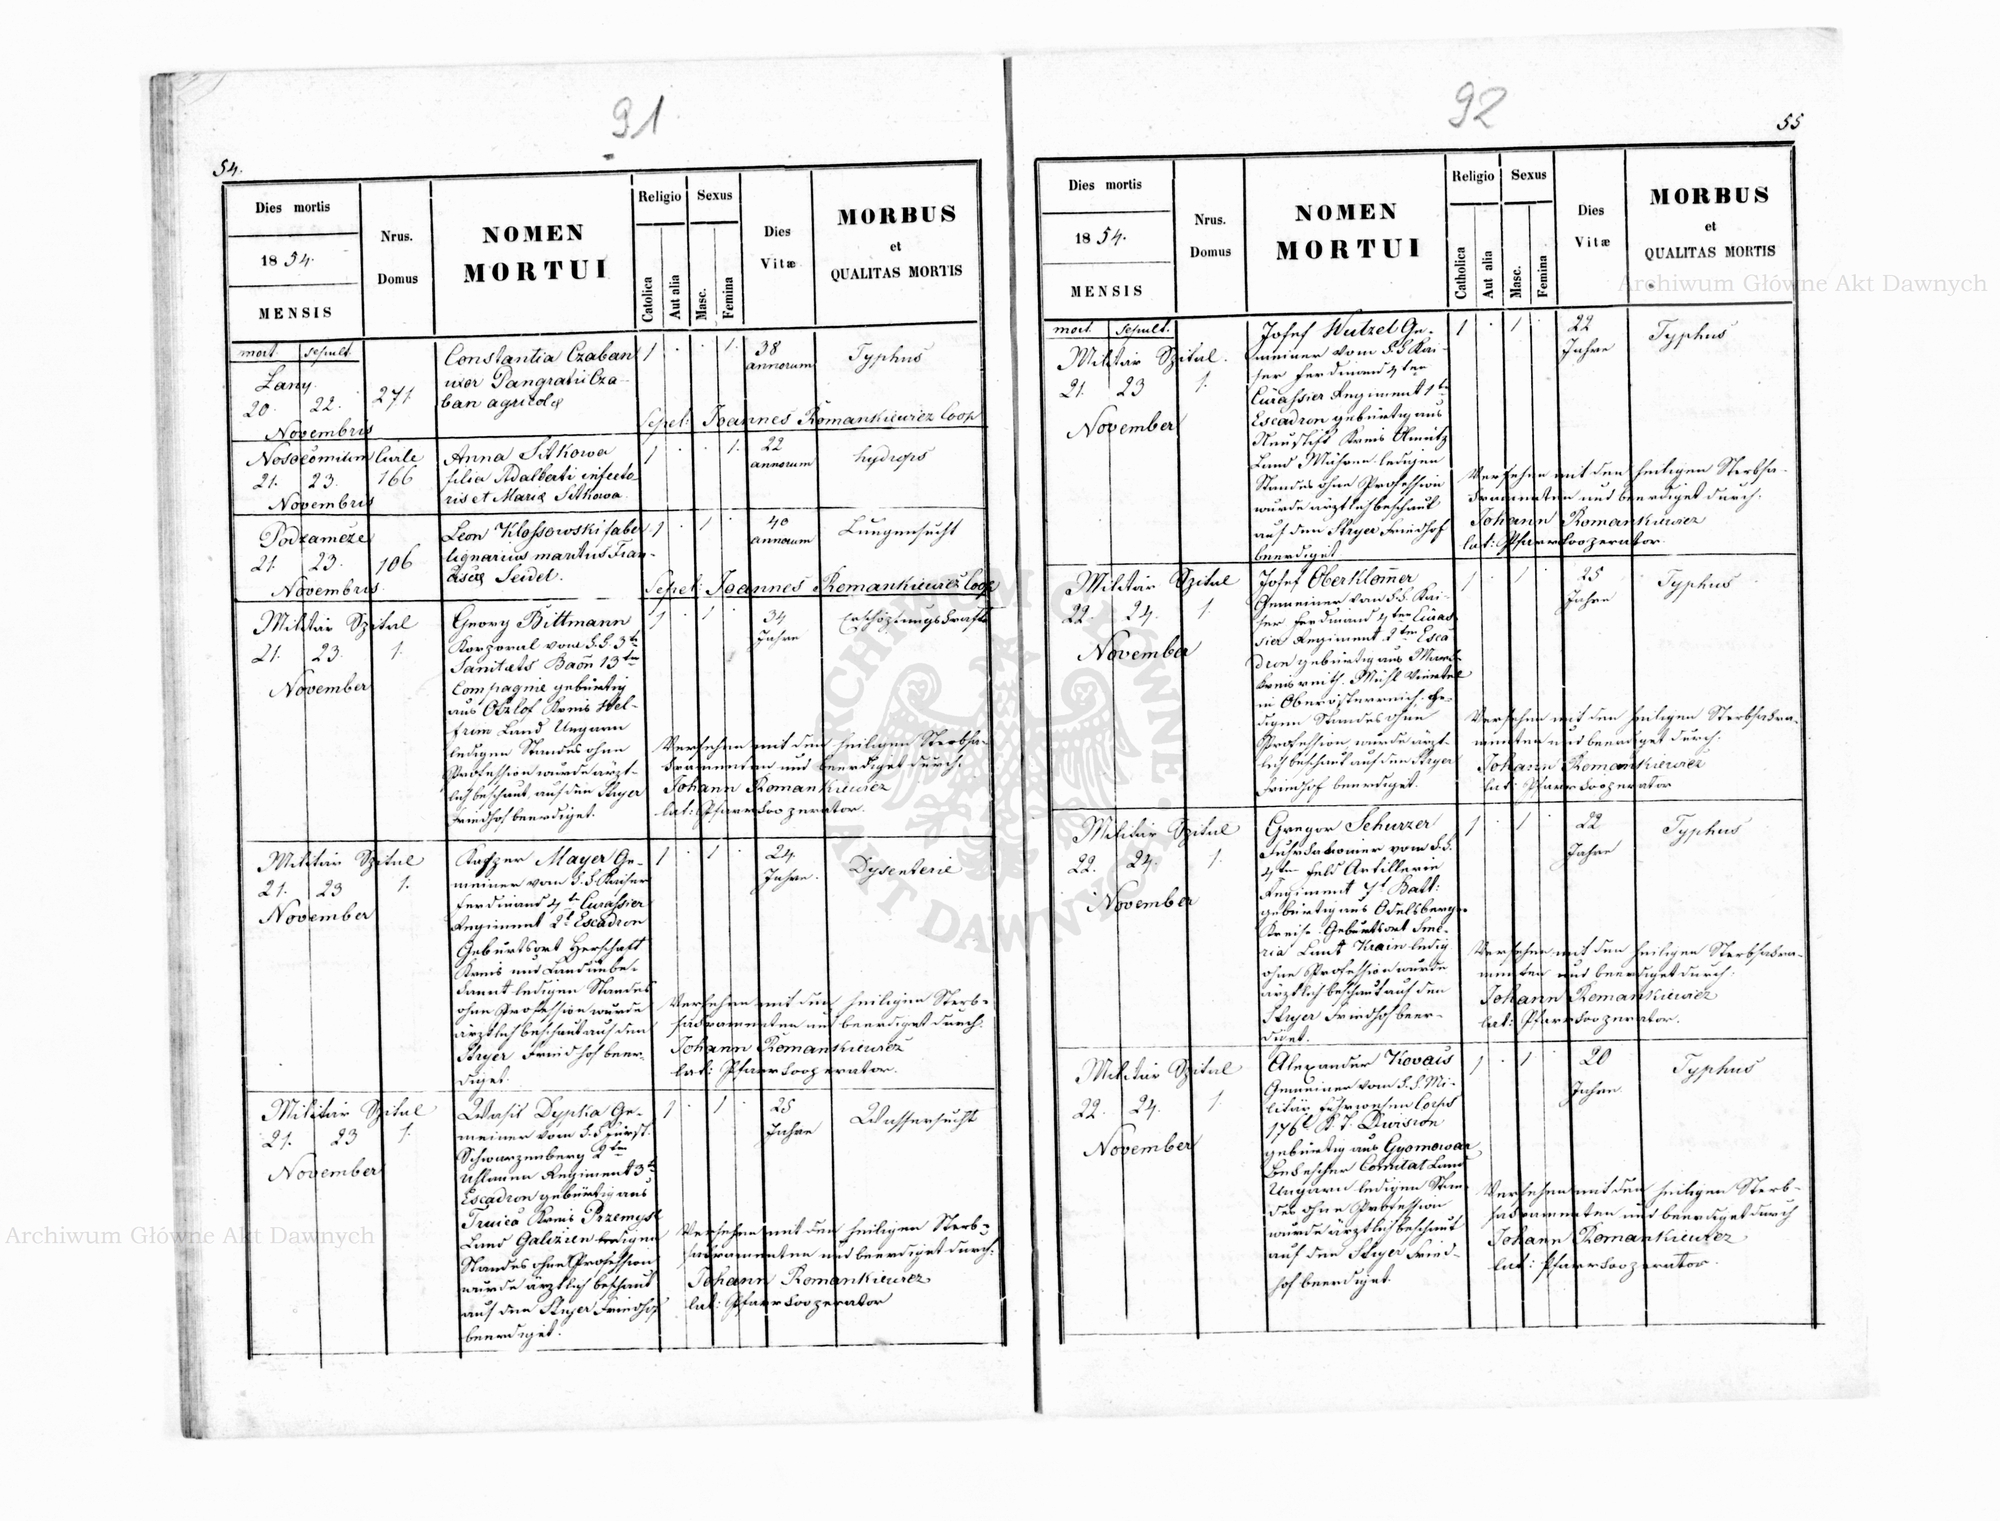 91
54.
Dies mortis
1854.
MENSIS
Nrus.
Domus
NOMEN
MORTUI
Religio
Catolica
Aut alia
Sexus
Masc.
Femina
Dies
Vitæ
MORBUS
et
QUALITAS MORTIS
mort sepult
Lany
20. 22. 271
Novembris
Constantia Czaban
uxor Pangratii Cza-
ban agricolæ
1 . . 1.
38
annorum
Typhus
Sepel: Joannes Romankiewicz Coop
Nosocomium Civile
21. 23. 166
Novembris
Anna Sitkowa
filia Adalberti infecto
ris et Mariæ Sitkowa
1 . . 1.
22
annorum
hydrops
Podzamcze
21. 23. 106
Novembris
Leon Klossowski faber
lignarius maritus Fran-
ciscæ Seidel.
1 . 1 .
40
annorum
Lungensucht
Sepel: Joannes Romankiewicz Coop
Militär Spital
21. 23. 1.
November
Georg Bittmann
Korporal vom k.k. 3te
Sanitäts Baõn 13te
Compagnie gebürtig
aus Kreis
Land Ungarn
ledigen Standes ohne
Profession wurde ärzt-
lich beschaut, auf den Stryer
Friedhof beerdiget.
1 . 1 .
34
Jahre
Erschöpfungs Krafte
Versehen mit den heiligen Sterbsa-
kramenten und beerdiget durch
Johann Romankiewicz
lat: Pfarrkooperator.
Militär Spital
21. 23 1.
November
Kasper Mayer Ge-
meiner vom k.k. Kaiser
Ferdinand 4te Curassier
Regiment 2t Escadron
Geburtsort Herschaft
Kreis und Land unbe-
kannt ledigen Standes
ohne Profession wurde
ärztlich beschaut auf den
Stryer Friedhof beer-
diget.
1 . 1 .
24.
Jahre.
Dysenterie
Versehen mit den heiligen Sterb-
sakramenten und beerdiget durch.
Johann Romankiewicz
lat: Pfarrkooperator.
Militär Spital
21. 23 1.
November
Wasil Dypka Ge-
meiner vom k.k. Fürst
Schwarzenberg 2ten
Uhlanen Regiment 3te
Escadron gebürtig aus
Truica Kreis Przemysl
Land Galizien ledigen
Standes ohne Profession
wurde ärztlich beschaut
auf den Stryer Friedhof
beerdiget.
1 . 1 .
25
Jahre
Wassersucht
Versehen mit den heiligen Sterb-
sakramenten und beerdiget durch:
Johann Romankiewicz
lat: Pfarrkooperator
92
55
Dies mortis
1854.
MENSIS
Nrus.
Domus
NOMEN
MORTUI
Religio
Catholica
Aut alia
Sexus
Masc.
Femina
Dies
Vitæ
MORBUS
et
QUALITAS MORTIS
mort. sepult.
Militär Spital.
21. 23 1.
November
Josef Wutzel Ge-
meiner vom k.k. Kai-
ser Ferdinand 4ten
Curassier Regiment 1te
Escadron gebürtig aus
Neustift Kreis Olmütz
Land Mähren ledigen
Standes ohne Profession
wurde ärztlich beschaut
auf den Stryer Friedhof
beerdiget
1 . 1 .
22
Jahre
Typhus
Versehen mit den heiligen Sterbsa-
kramenten und beerdiget durch.
Johann Romankiewicz
lat: Pfarrkooperator.
Militär Spital
22. 24. 1.
November
Josef Oberklom̃er
Gemeiner vom k.k. Kai-
ser Ferdinand 4ten Curas
sier Regiment 2ten Esca
dron gebürtig aus
Mühl Viertel
in Oberösterreich, le-
digen Standes ohne
Profession, wurde ärzt-
lich beschaut auf den Stryer
Friedhof beerdiget.
1 . 1 .
25
Jahre
Typhus
Versehen mit den heiligen Sterbsakra-
menten und beerdiget durch:
Johann Romankiewicz
lat: Pfarrkooperator
Militär Spital
22. 24. 1.
November
Gregor Schurzer
vom k.k.
4ten Feld Artillerie
Regiment 7t Batt:
gebürtig aus Adelsberger
Kreise Geburtsort
Land Krain ledig
ohne Profession wurde
ärztlich beschaut auf den
Stryer Friedhof beer-
diget.
1 . 1 .
22
Jahre
Typhus
Versehen mit den heiligen Sterbsakra-
menten und beerdiget durch:
Johann Romankiewicz
lat: Pfarrkooperator.
Militär Spital
22. 24. 1.
November
Alexander Kovats
Gemeiner vom k.k. Mi-
litär Fuhrwesen Corps
176t Division
gebürtig aus Gyomowar
Comitat Land
Ungarn ledigen Stan-
des ohne Profession
wurde ärztlich beschaut
auf den Stryer Fried-
hof beerdiget.
1 . 1 .
20
Jahre
Typhus
Versehen mit den heiligen Sterb-
sakramenten und beerdiget durch
Johann Romankiewicz
lat: Pfarrkooperator.
Archiwum Główne Akt Dawnych
Archiwum Główne Akt Dawnych
ARCHIWUM GŁÓWNE AKT DAWNYCH